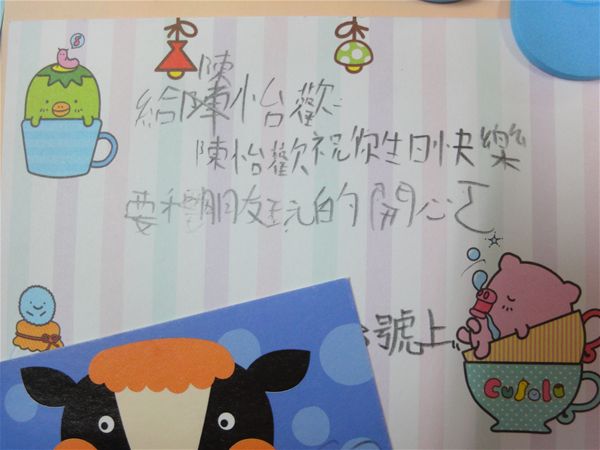 陳
給陳怡歡
陳怡歡祝你生日快樂
要和朋友玩的開心ㄛ
號上
Cujolu